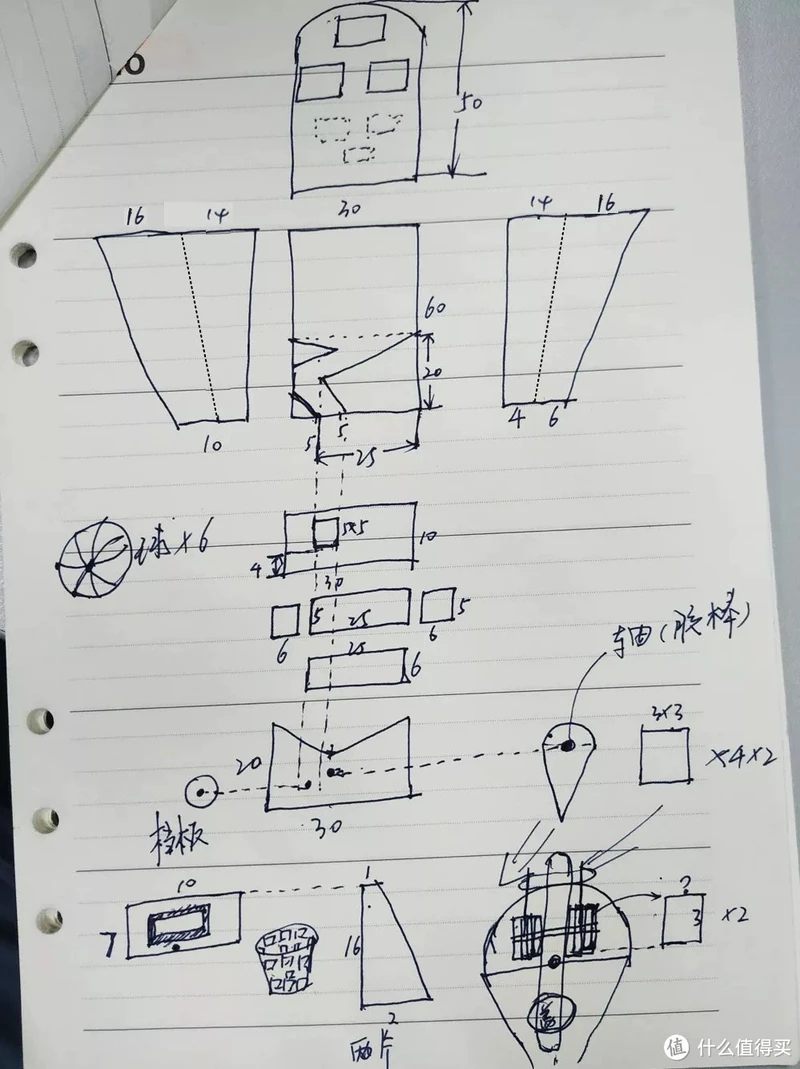 50
16 14
30
14 16
60
20
10
5 5
25
4 6
球×6
5×5
10
4
30
5 25 5
6 6
25
6
轴(胶棒)
3×3
×4×2
20
挡板
30
10
7
1
16
2
两片
3 ×2
盖
值 什么值得买